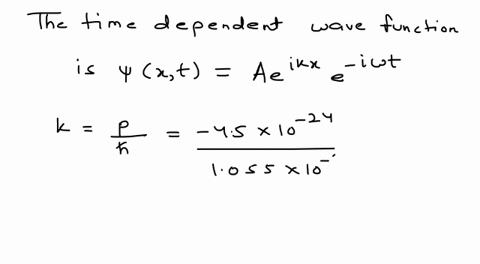 The time dependent wave function
is ψ(x,t) = Ae^{ikx} e^{-iωt}
k = p/ħ = -4.5 × 10^{-24} / 1.055 × 10^{-